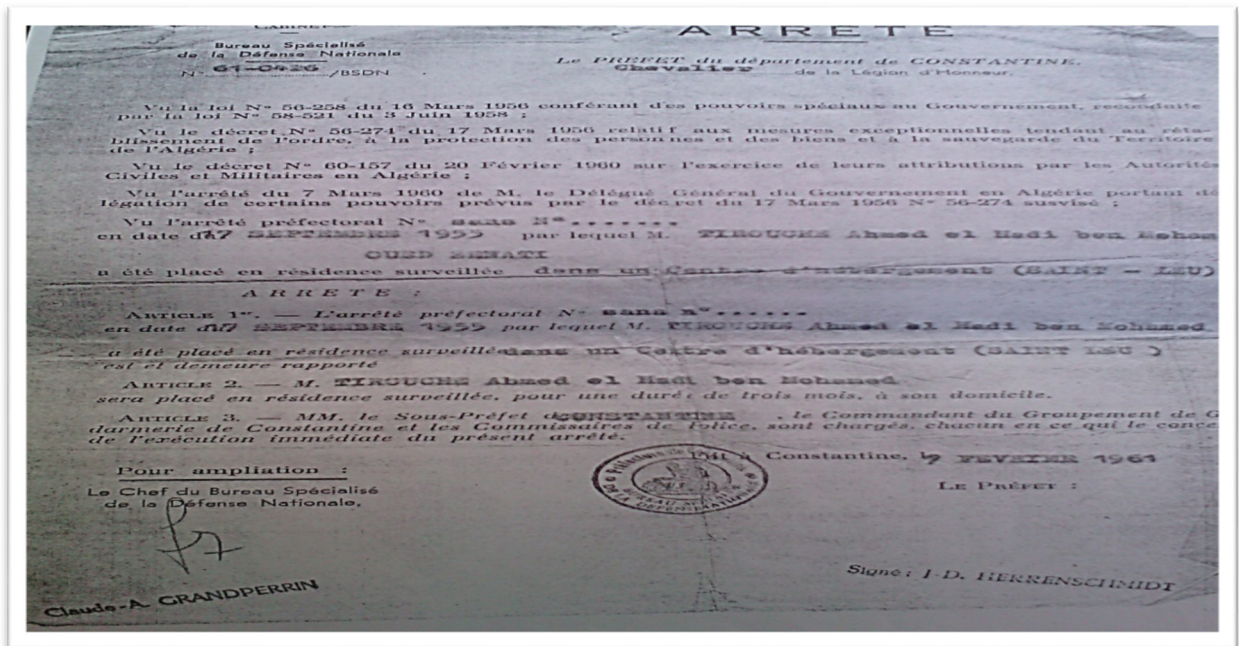 CABINET
Bureau Spécialisé
de la Défense Nationale
N° 61-0426 /BSDN
ARRETE
Le PREFET du département de CONSTANTINE,
Chevalier de la Légion d'Honneur,
Vu la loi N° 56-258 du 16 Mars 1956 conférant des pouvoirs spéciaux au Gouvernement, reconduite
par la loi N° 58-521 du 3 Juin 1958 ;
Vu le décret N° 56-274 du 17 Mars 1956 relatif aux mesures exceptionnelles tendant au réta-
blissement de l'ordre, à la protection des personnes et des biens et à la sauvegarde du Territoire
de l'Algérie ;
Vu le décret N° 60-157 du 20 Février 1960 sur l'exercice de leurs attributions par les Autorités
Civiles et Militaires en Algérie ;
Vu l'arrêté du 7 Mars 1960 de M. le Délégué Général du Gouvernement en Algérie portant dé
légation de certains pouvoirs prévus par le décret du 17 Mars 1956 N° 56-274 susvisé ;
Vu l'arrêté préfectoral N° sans N°.......
en date du 17 SEPTEMBRE 1959 par lequel M. TIROUCHE Ahmed el Hadi ben Moham
OUED ZENATI
a été placé en résidence surveillée dans un Centre d'hébergement (SAINT - LEU)
ARRETE :
ARTICLE 1er. — L'arrêté préfectoral N° sans N°......
en date du 17 SEPTEMBRE 1959 par lequel M. TIROUCHE Ahmed el Hadi ben Mohamed
a été placé en résidence surveillée dans un Centre d'hébergement (SAINT LEU )
est et demeure rapporté
ARTICLE 2. — M. TIROUCHE Ahmed el Hadi ben Mohamed
sera placé en résidence surveillée, pour une durée de trois mois, à son domicile.
ARTICLE 3. — MM. le Sous-Préfet de CONSTANTINE , le Commandant du Groupement de G
darmerie de Constantine et les Commissaires de Police, sont chargés, chacun en ce qui le conce
de l'exécution immédiate du présent arrêté.
Fait à Constantine, le FEVRIER 1961
Pour ampliation :
Le Chef du Bureau Spécialisé
de la Défense Nationale,
LE PRÉFET :
Claude-A. GRANDPERRIN
Signé : J-D. HERRENSCHMIDT